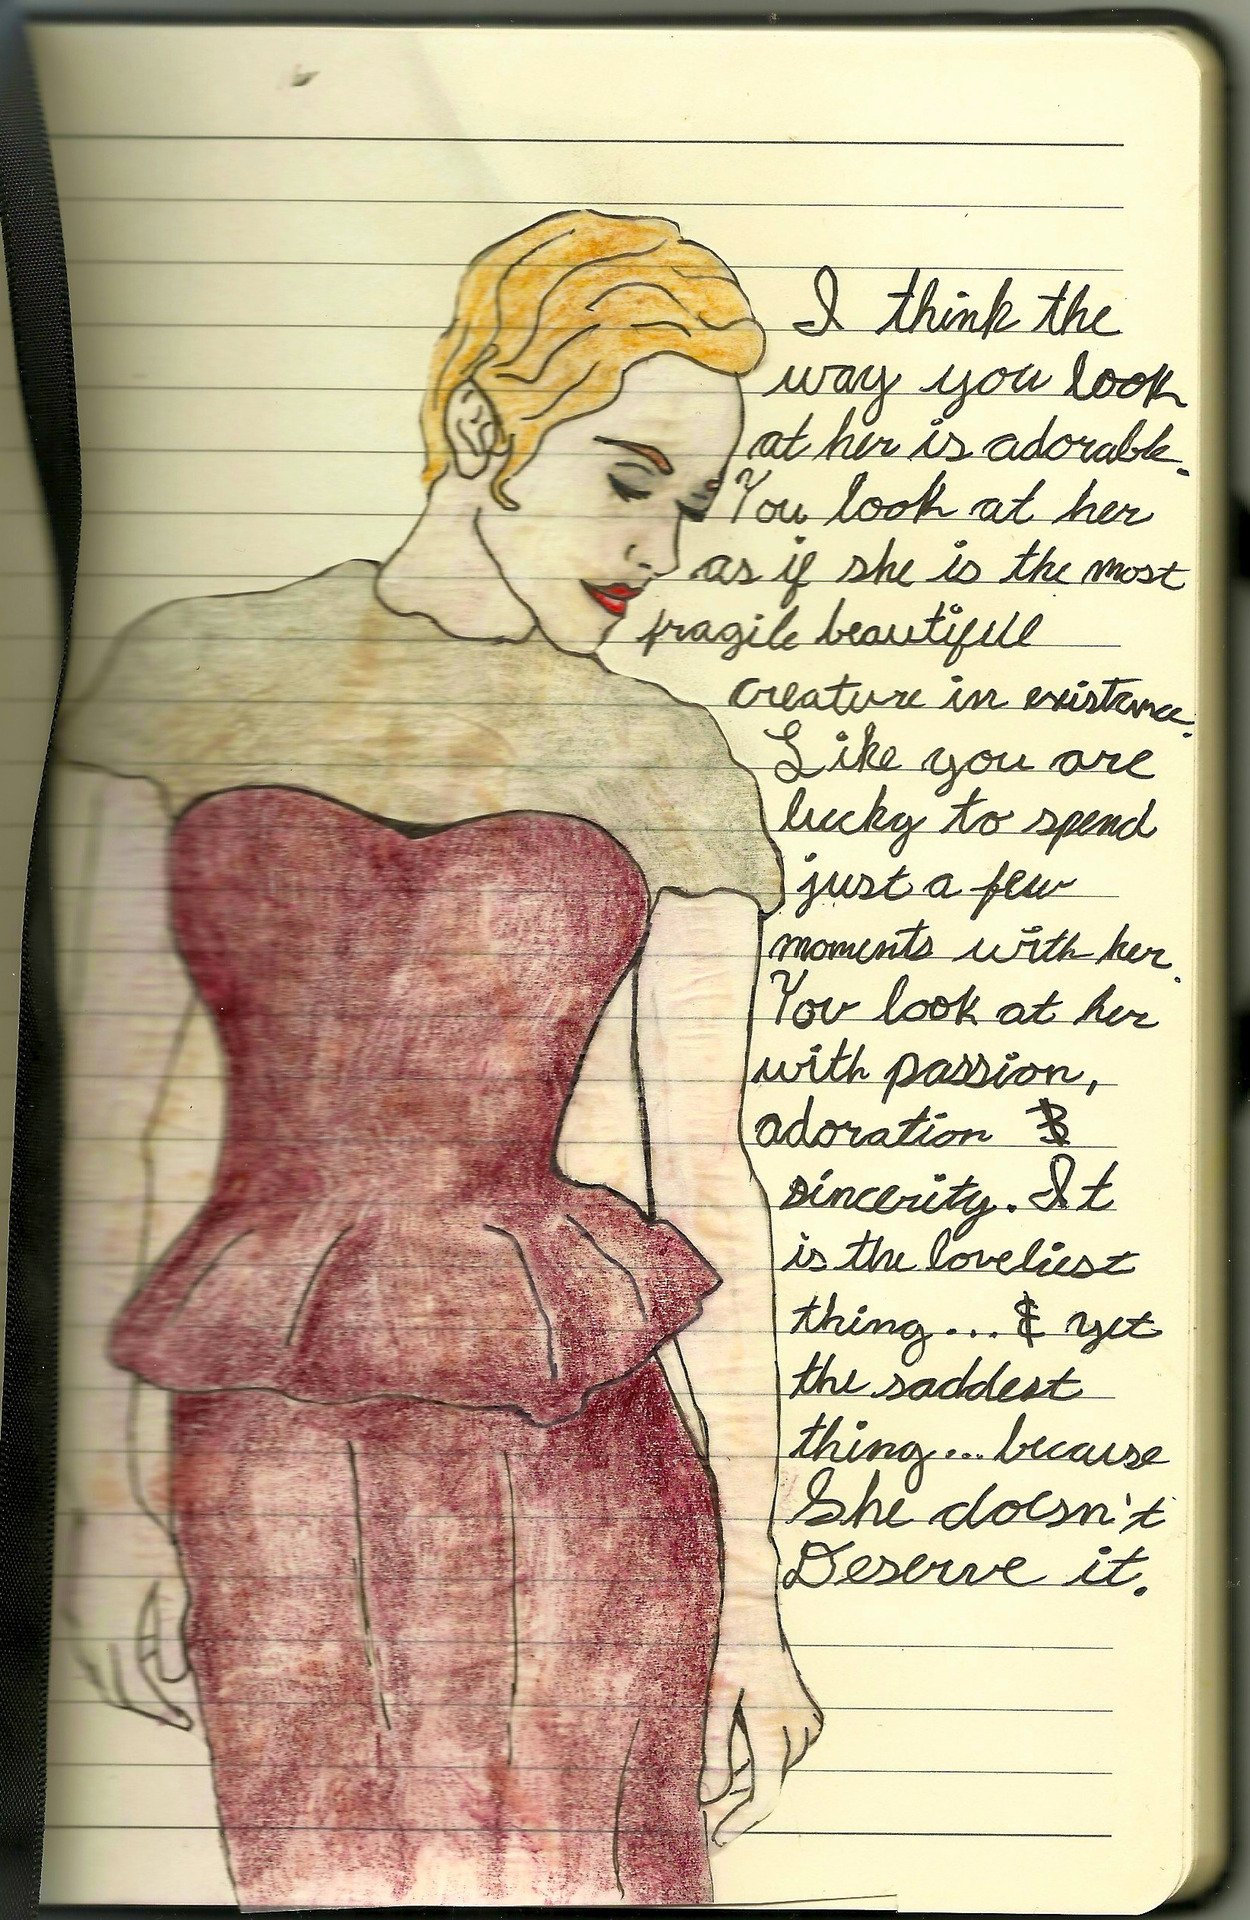 I think the
way you look
at her is adorable.
You look at her
as if she is the most
fragile beautifull
creature in existance.
Like you are
lucky to spend
just a few
moments with her.
You look at her
with passion,
adoration &
sincerity. It
is the loveliest
thing... & yet
the saddest
thing... because
She doesn't
Deserve it.